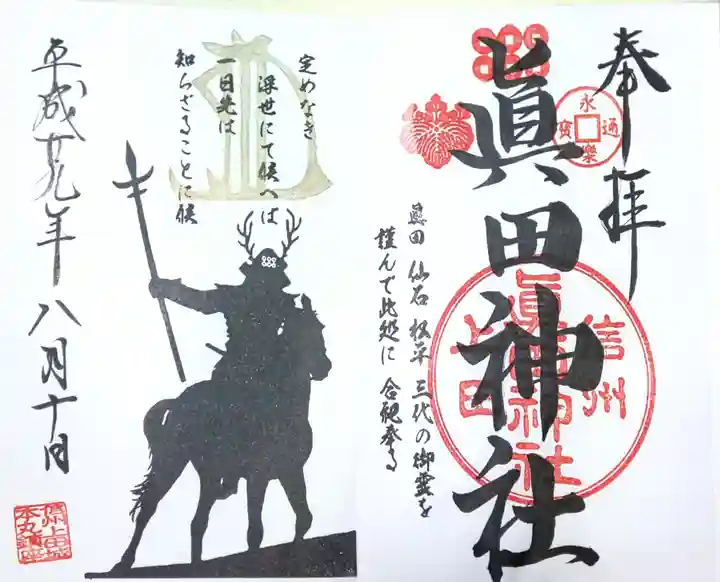 奉拝
永樂通寳
眞田神社
信州
上田
眞田神社
真田 仙石 松平 三代の御霊を
謹んで此処に 合祀奉る
定めなき
浮世にて候へば
一日先は
知らざることに候
平成廿九年八月十日